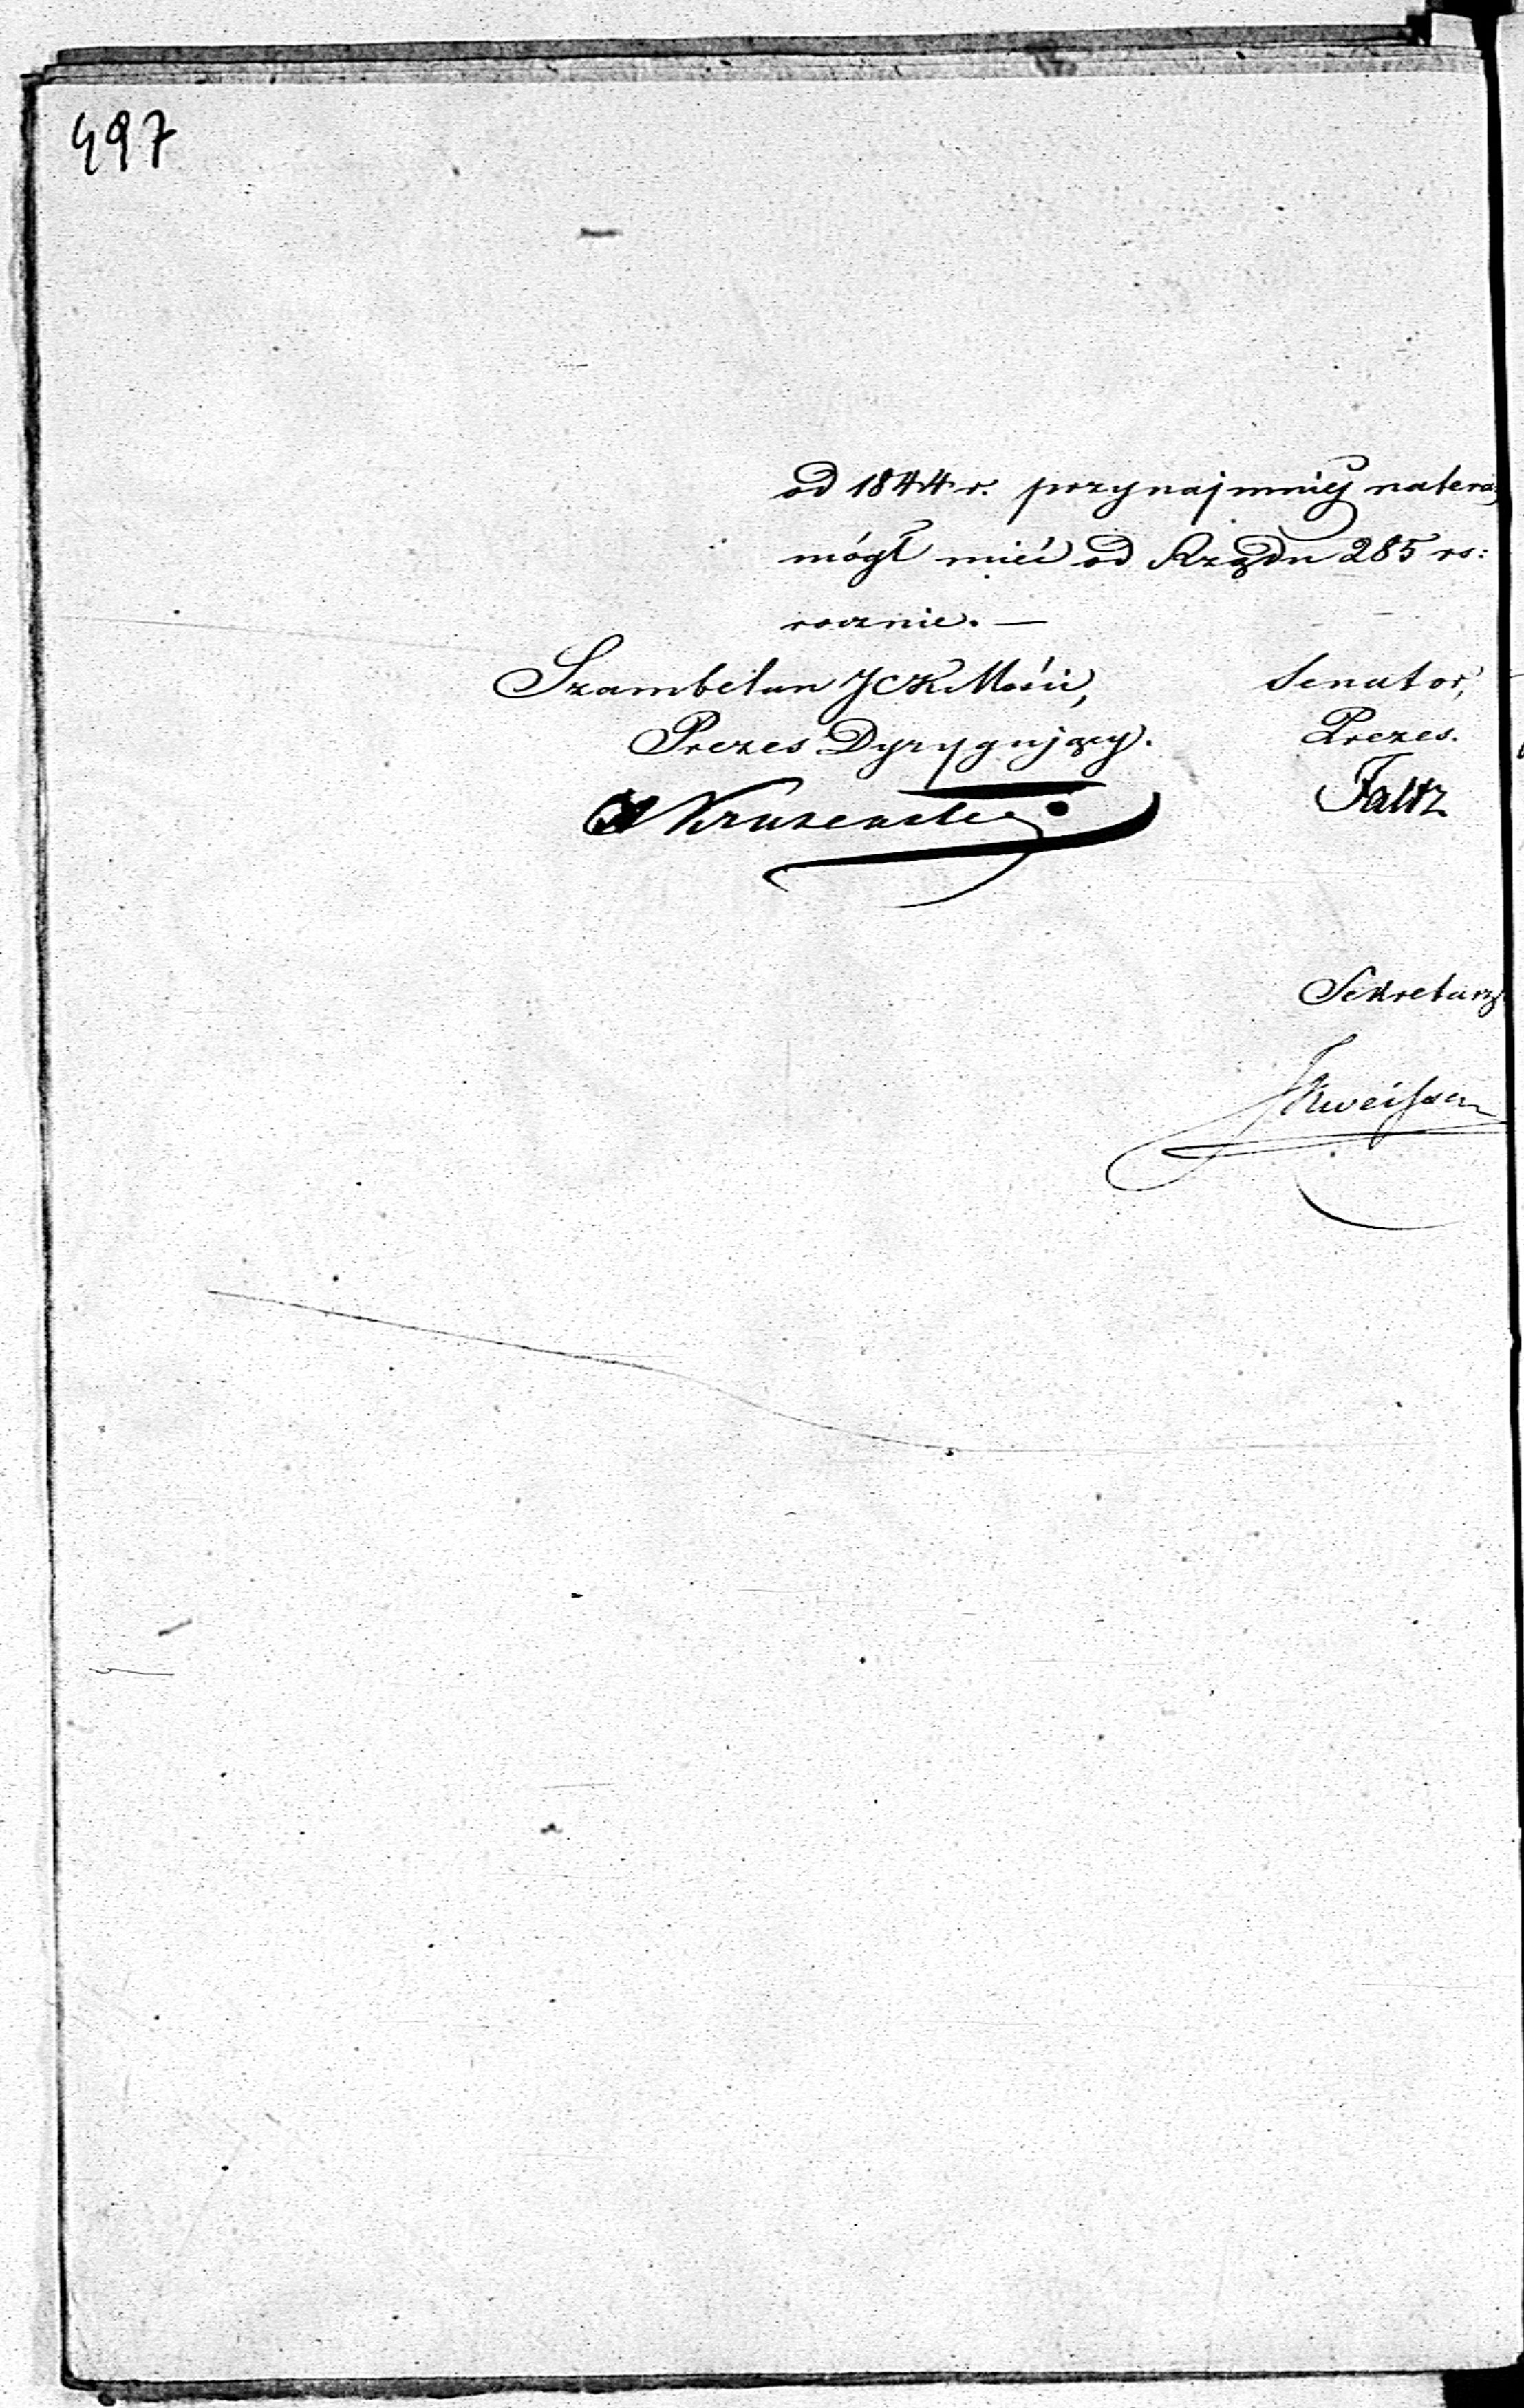 497
od 1844 r. przynajmniéj nateraz
mógł mieć od Rządu 285 rs:
rocznie. —
Szambelan JCK Mości, Senator,
Prezes Dyrygujący. Prezes.
Faltz
Sekretarz